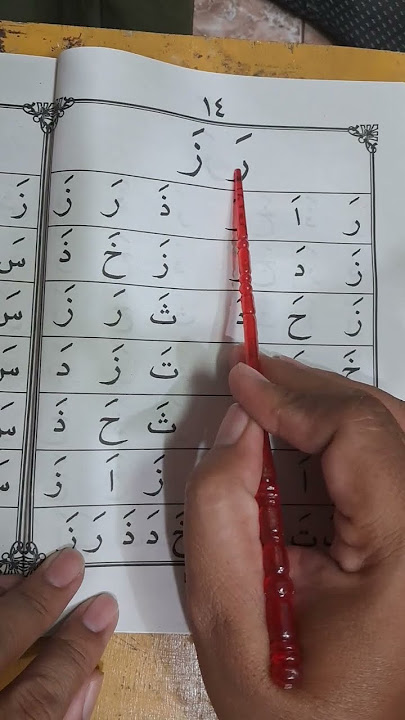 ١٤
رَ زَ
رَ اَ ذَ رَ زَ
زَ دَ زَ خَ ذَ
زَ حَ دَ ثَ رَ زَ
خَ تَ زَ دَ
ثَ حَ ذَ
اَ زَ اَ زَ
تَ خَ دَ ذَ رَ زَ
زَ
سَ
سَ
سَ
سَ
سَ